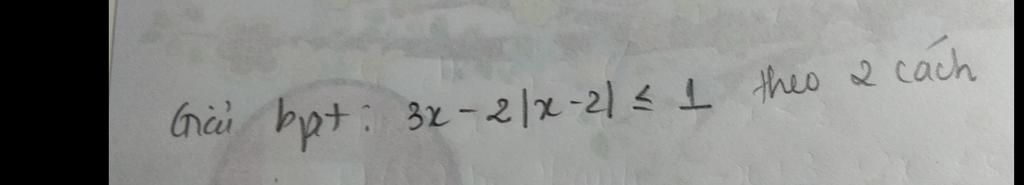 Giải bpt: 3x - 2|x - 2| ≤ 1 theo 2 cách